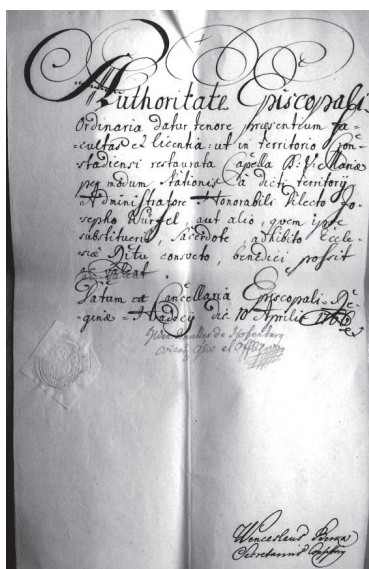 Authoritate Episcopali
Ordinaria datur tenore præsentium fa-
cultas et licentia: ut in territorio Jon-
stadiensi restaurata Capella B: V: Mariæ
per modum stationis (a dicti territorij
Administratore Honorabili Dilecto Jo-
sepho Würfel, aut alio, quem ipse
substituerit, Sacerdote, adhibito Eccle-
siæ Ritu consveto, benedici possit
ac valeat.
Datum ex Cancellaria Episcopali Re-
ginæ Hradecij die 10 Aprilis
de Hofenburg
Wenceslaus
Secretarius